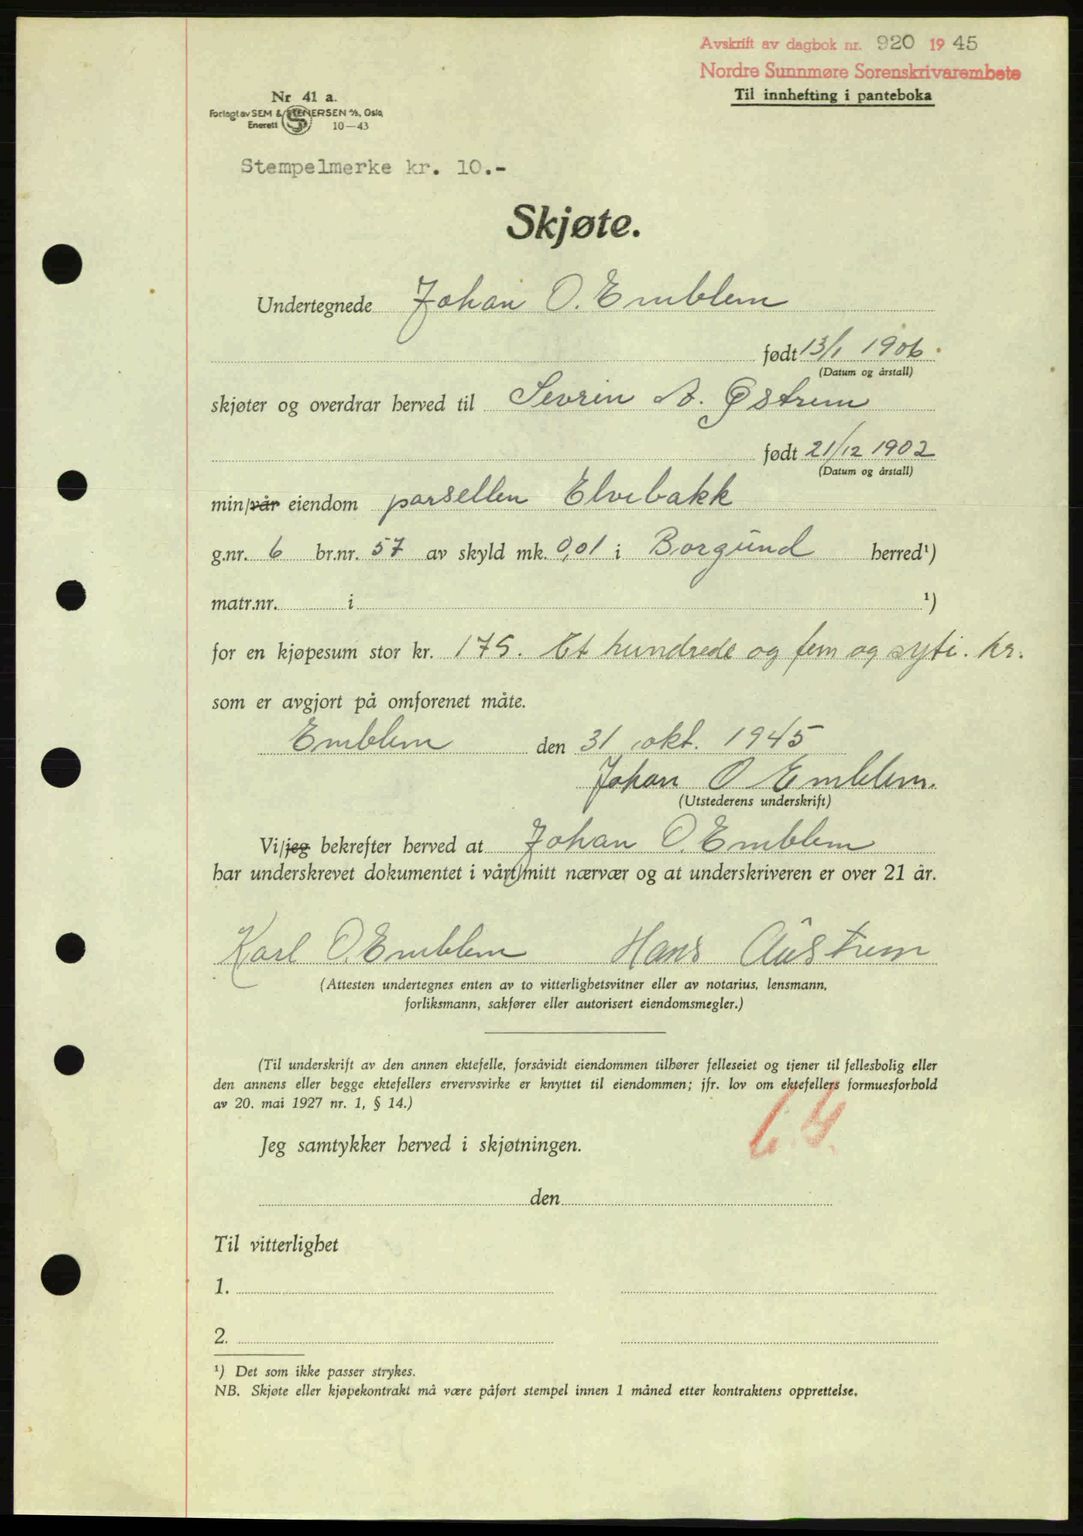 Avskrift av dagbok nr. 920 1945
Nordre Sunnmøre Sorenskrivarembete
Til innhefting i panteboka
Nr 41 a.
Forlagt av SEM & STENERSEN A/S, Oslo
Enerett 10-43
Stempelmerke kr. 10.-
Skjøte.
Undertegnede Johan O. Emblem
født 13/1 1906
(Datum og årstall)
skjøter og overdrar herved til Sevrin A. Østrem
født 21/12 1902
(Datum og årstall)
min/vår eiendom parsellen Elvebakk
g.nr. 6 br.nr. 57 av skyld mk. 0,01 i Borgund herred¹)
matr.nr. i ¹)
for en kjøpesum stor kr. 175. Et hundrede og fem og syti. kr.
som er avgjort på omforenet måte.
Emblem den 31 okt. 1945
Johan O Emblem.
(Utstederens underskrift)
Vi/jeg bekrefter herved at Johan O. Emblem
har underskrevet dokumentet i vårt/mitt nærvær og at underskriveren er over 21 år.
Karl O. Emblem Hans Austrem
(Attesten undertegnes enten av to vitterlighetsvitner eller av notarius, lensmann,
forliksmann, sakfører eller autorisert eiendomsmegler.)
(Til underskrift av den annen ektefelle, forsåvidt eiendommen tilhører felleseiet og tjener til fellesbolig eller
den annens eller begge ektefellers ervervsvirke er knyttet til eiendommen; jfr. lov om ektefellers formuesforhold
av 20. mai 1927 nr. 1, § 14.)
Jeg samtykker herved i skjøtningen.
den
Til vitterlighet
1.
2.
¹) Det som ikke passer strykes.
NB. Skjøte eller kjøpekontrakt må være påført stempel innen 1 måned etter kontraktens opprettelse.